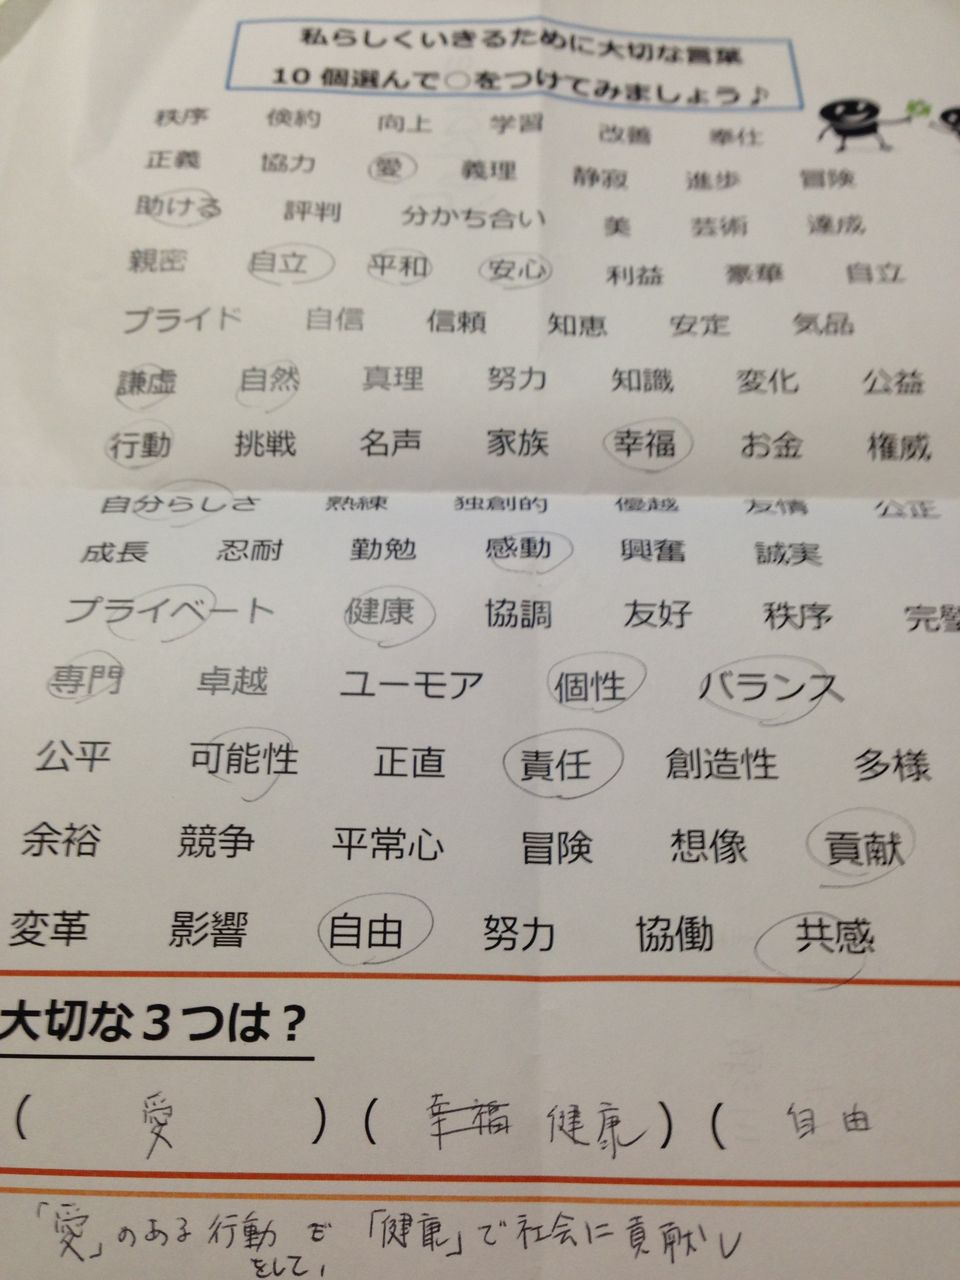 私らしくいきるために大切な言葉
10個選んで○をつけてみましょう♪
秩序 倹約 向上 学習 改善 奉仕
正義 協力 愛 義理 静寂 進歩 冒険
助ける 評判 分かち合い 美 芸術 達成
親密 自立 平和 安心 利益 豪華 自立
プライド 自信 信頼 知恵 安定 気品
謙虚 自然 真理 努力 知識 変化 公益
行動 挑戦 名声 家族 幸福 お金 権威
自分らしさ 熟練 独創的 優越 友情 公正
成長 忍耐 勤勉 感動 興奮 誠実
プライベート 健康 協調 友好 秩序 完璧
専門 卓越 ユーモア 個性 バランス
公平 可能性 正直 責任 創造性 多様
余裕 競争 平常心 冒険 想像 貢献
変革 影響 自由 努力 協働 共感
大切な3つは?
( 愛 ) ( 幸福 健康 ) ( 自由
「愛」のある行動で「健康」で社会に貢献し
をして,